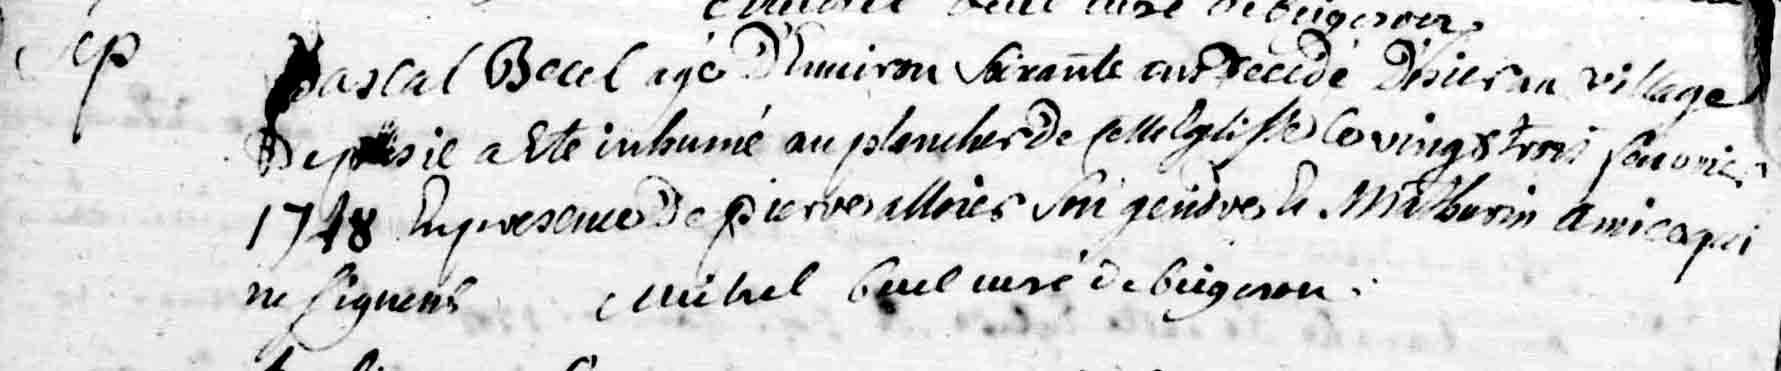 Sep
Pascal Becel agé D'Environ Soixante ans Decedé D'hier au village
De a Eté inhumé au plancher de cette Eglisse le vingt trois fevrier
1748 En presence De pierre allies Son gendre Et Mathurin Amice qui
ne signent Michel curé de bigeron